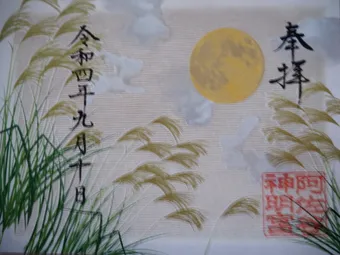 奉拝
令和四年九月十日
阿佐谷
神明宮